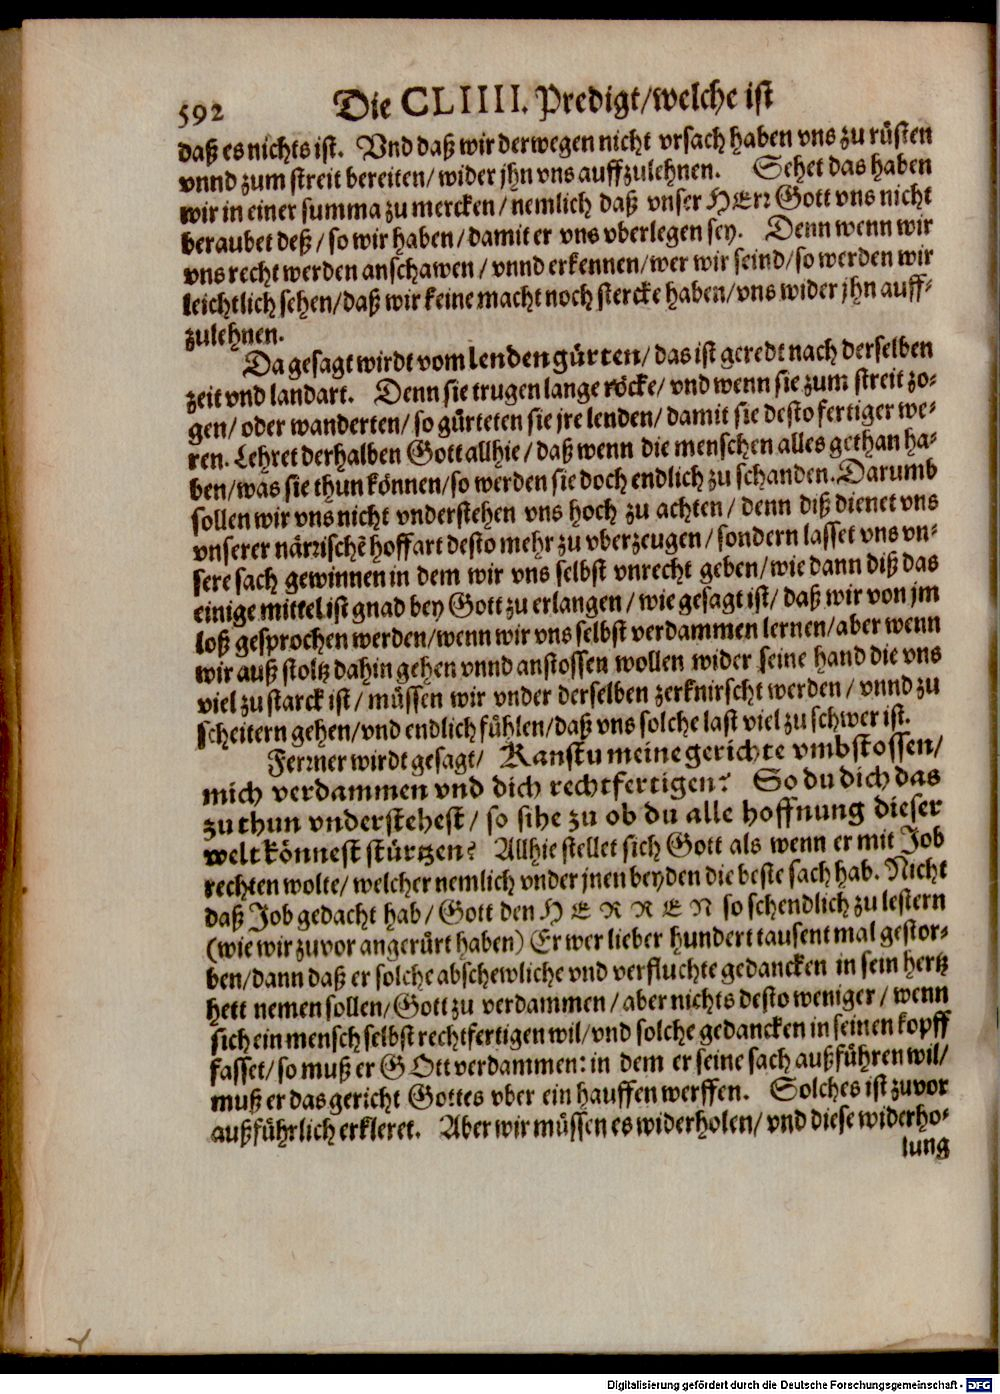 592 Die CLIIII. Predigt/welche ist
daß es nichts ist. Vnd daß wir derwegen nicht vrsach haben vns zu rüsten
vnnd zum streit bereiten/ wider jhn vns auffzulehnen. Sehet das haben
wir in einer summa zu mercken/ nemlich daß vnser HErr Gott vns nicht
beraubet deß/ so wir haben/ damit er vns vberlegen sey. Denn wenn wir
vns recht werden anschawen/ vnnd erkennen/ wer wir seind/ so werden wir
leichtlich sehen/ daß wir keine macht noch stercke haben/ vns wider jhn auff-
zulehnen.
Da gesagt wirdt vom lenden gürten/ das ist geredt nach derselben
zeit vnd landart. Denn sie trugen lange röcke/ vnd wenn sie zum streit zo-
gen/ oder wanderten/ so gürteten sie jre lenden/ damit sie desto fertiger we-
ren. Lehret derhalben Gott allhie/ daß wenn die menschen alles gethan ha-
ben/ was sie thun können/ so werden sie doch endlich zu schanden. Darumb
sollen wir vns nicht vnderstehen vns hoch zu achten/ denn diß dienet vns
vnserer närrischẽ hoffart desto mehr zu vberzeugen/ sondern lasset vns vn-
sere sach gewinnen in dem wir vns selbst vnrecht geben/ wie dann diß das
einige mittel ist gnad bey Gott zu erlangen/ wie gesagt ist/ daß wir von jm
loß gesprochen werden/ wenn wir vns selbst verdammen lernen/ aber wenn
wir auß stoltz dahin gehen vnnd anstossen wollen wider seine hand die vns
viel zu starck ist/ müssen wir vnder derselben zerknirscht werden/ vnnd zu
scheitern gehen/ vnd endlich fühlen/ daß vns solche last viel zu schwer ist.
Ferrner wirdt gesagt/ Kanstu meine gerichte vmbstossen/
mich verdammen vnd dich rechtfertigen? So du dich das
zu thun vnderstehest/ so sihe zu ob du alle hoffnung dieser
welt könnest stürtzen? Allhie stellet sich Gott als wenn er mit Job
rechten wolte/ welcher nemlich vnder jnen beyden die beste sach hab. Nicht
daß Job gedacht hab/ Gott den HERREN so schendlich zu lestern
(wie wir zuvor angerürt haben) Er wer lieber hundert tausent mal gestor-
ben/ dann daß er solche abschewliche vnd verfluchte gedancken in sein hertz
hett nemen sollen/ Gott zu verdammen/ aber nichts desto weniger/ wenn
sich ein mensch selbst rechtfertigen wil/ vnd solche gedancken in seinen kopff
fasset/ so muß er GOtt verdammen: in dem er seine sach außführen wil/
muß er das gericht Gottes vber ein hauffen werffen. Solches ist zuvor
außführlich erkleret. Aber wir müssen es widerholen/ vnd diese widerho-
lung
Digitalisierung gefördert durch die Deutsche Forschungsgemeinschaft - DFG